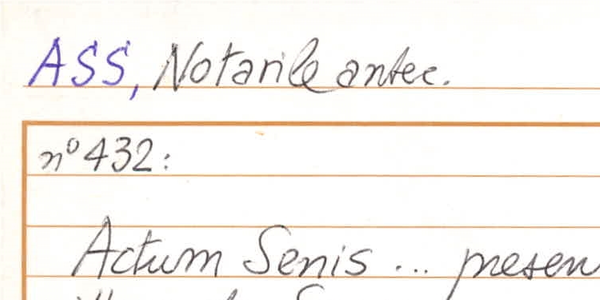 ASS, Notarile antec.
n° 432:
Actum Senis ... presen